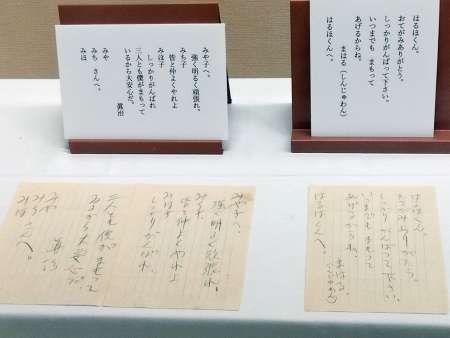 はるほくん。
おてがみありがとう。
しっかりがんばって下さい。
いつまでも まもって
あげるからね。
まはる(しんじゅわん)
はるほくんへ。
みや子へ。
強く明るく頑張れ。
みち子
皆と仲よくやれよ
しっかりがんばれ
三人とも僕がまもって
いるから大安心だ。
みや
みち さんへ。
みほ
はるほくん。
おてがみありがとう。
しっかりがんばって下さい。
いつまでもまもって
あげるからね。
まはる
はるほくんへ。
みや子へ。
強く明るく頑張れ。
みち子
皆と仲よくやれよ
しっかりがんばれ。
三人とも僕がまもって
ゐるから大安心だ。
みや
みち さんへ。
みほ